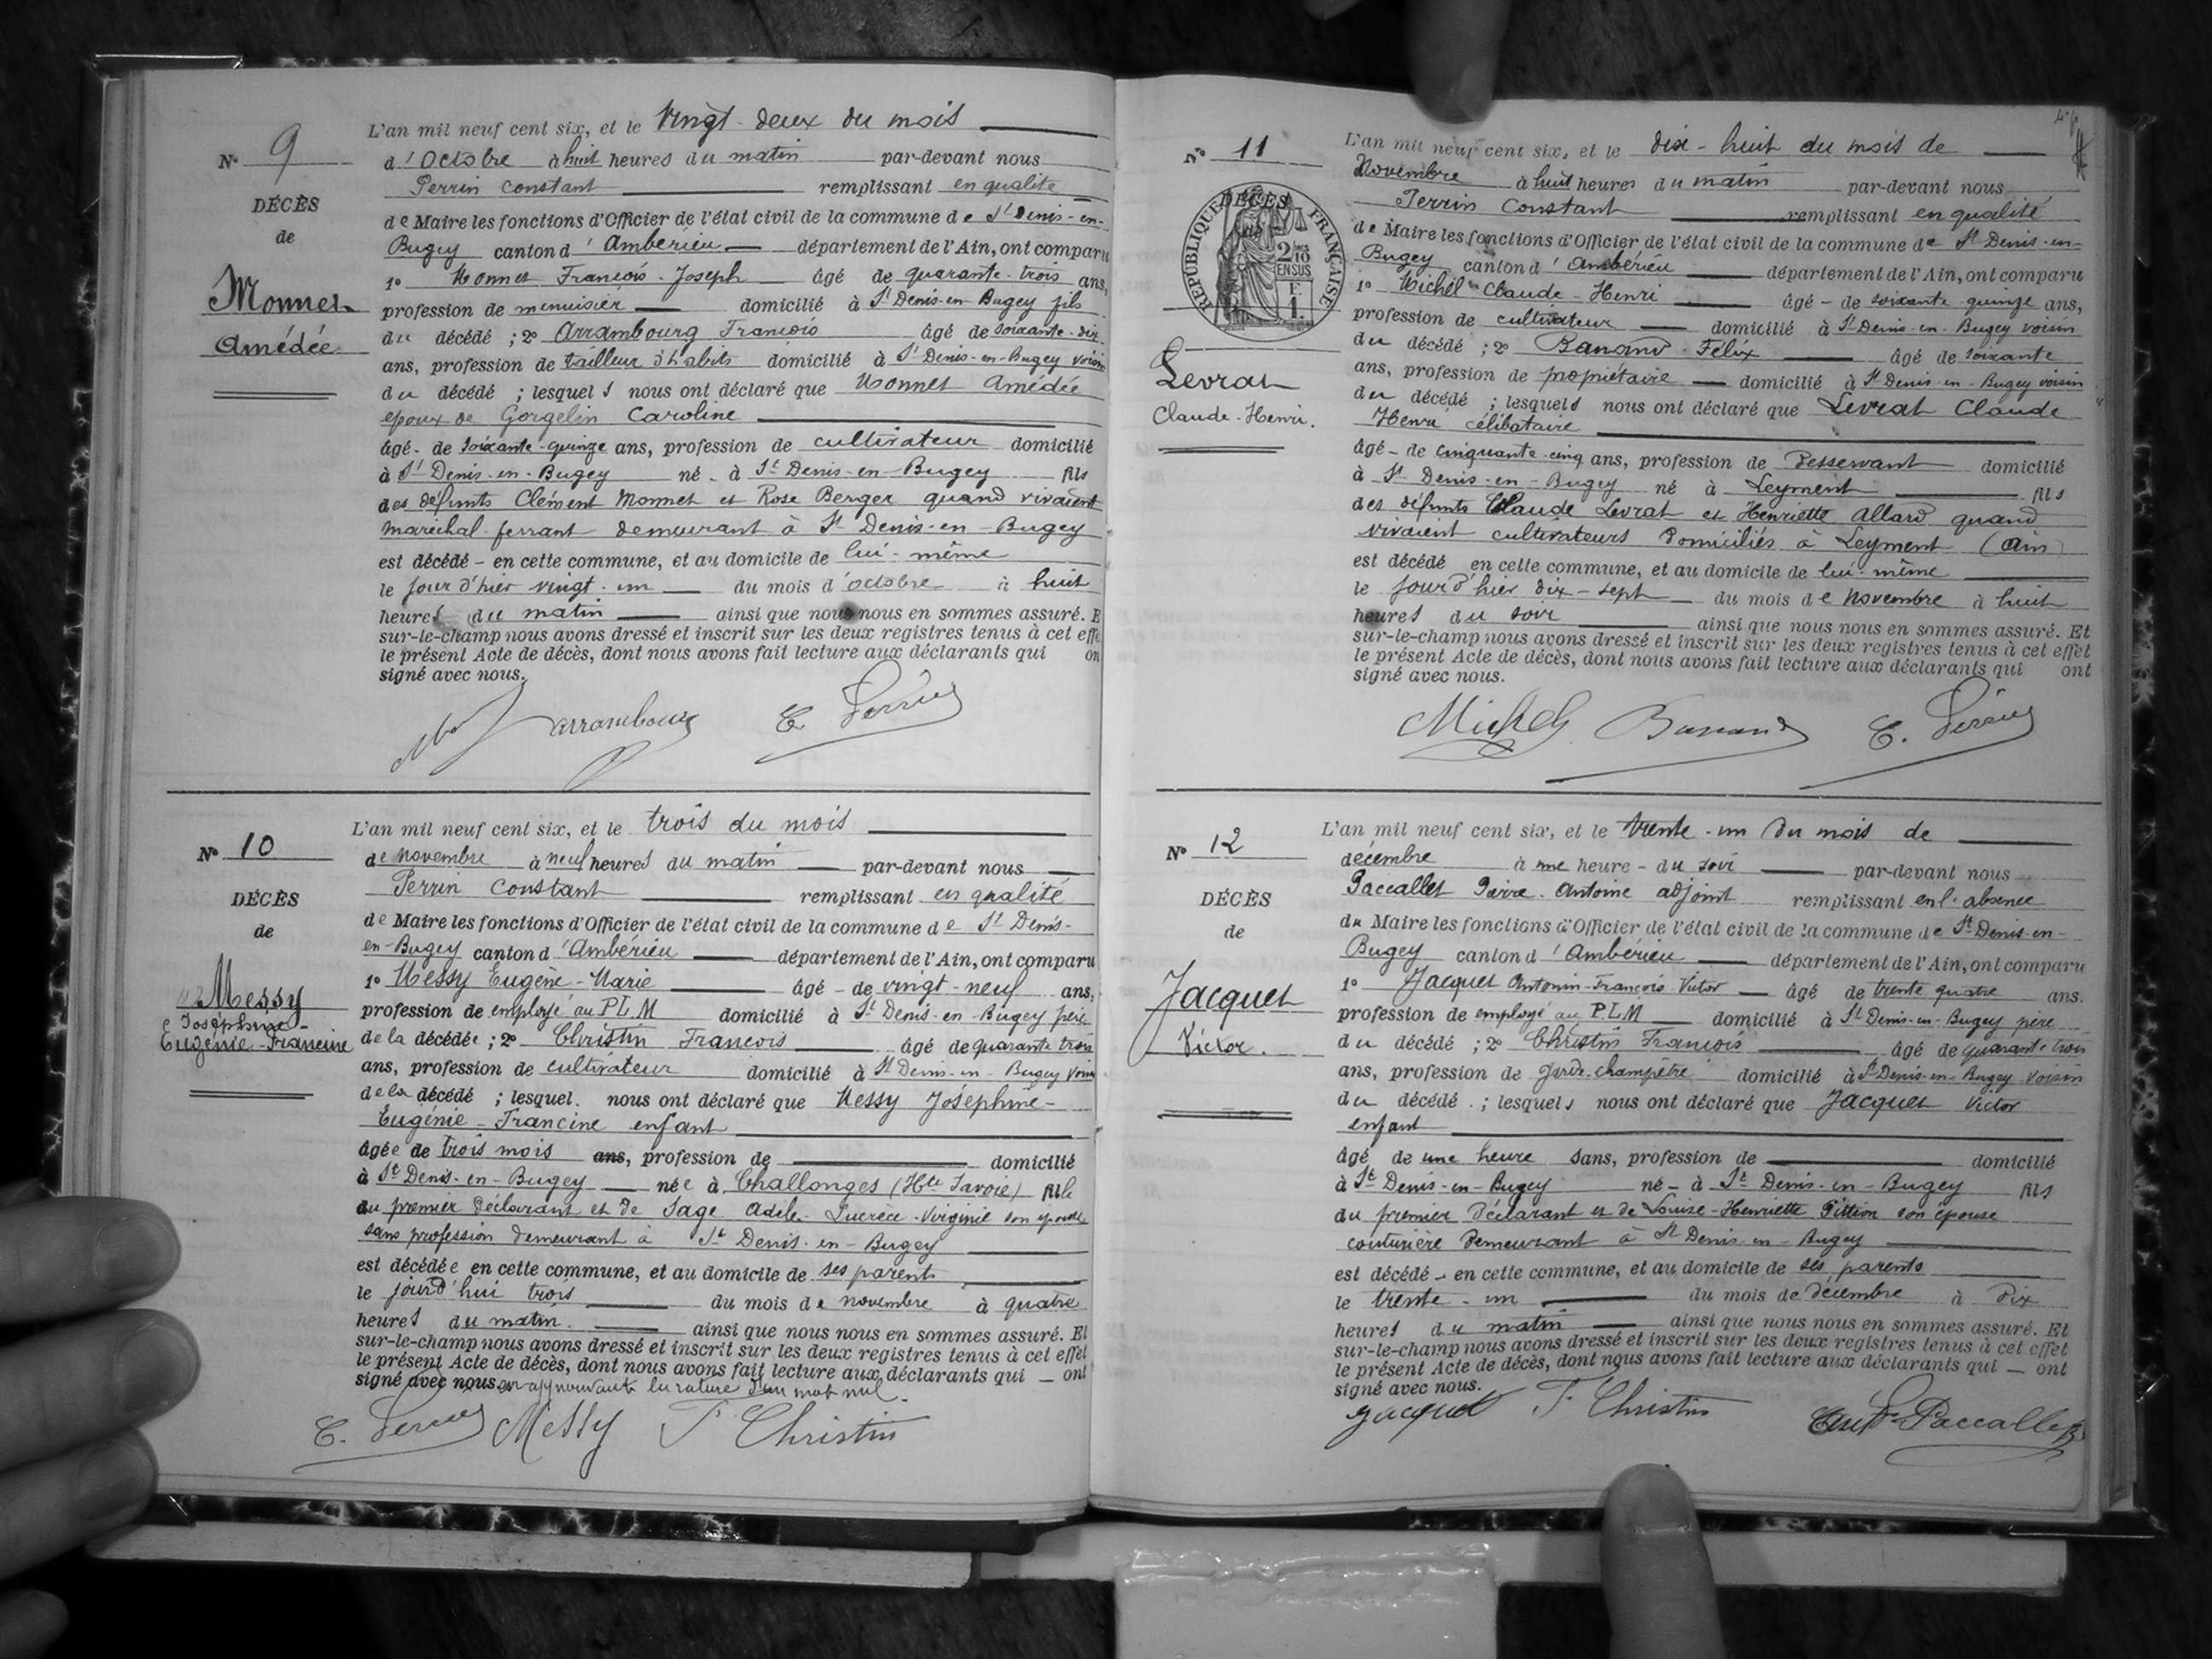 N° 9
DÉCÈS
de
Monnet
Amédée
L'an mil neuf cent six, et le vingt-deux du mois
d'Octobre à huit heures du matin par-devant nous
Perrin Constant remplissant en qualité
de Maire les fonctions d'Officier de l'état civil de la commune de St Denis-en-
Bugey canton d'Ambérieu département de l'Ain, ont comparu
1° Monnet François-Joseph âgé de quarante-trois ans,
profession de menuisier domicilié à St Denis-en-Bugey fils
du décédé ; 2° Arrambourg François âgé de soixante-dix
ans, profession de tailleur d'habits domicilié à St Denis-en-Bugey voisin
du décédé ; lesquels nous ont déclaré que Monnet Amédée
époux de Gorgelin Caroline
âgé de soixante-quinze ans, profession de cultivateur domicilié
à St Denis-en-Bugey né à St Denis-en-Bugey fils
des défunts Clément Monnet et Rose Berger quand vivaient
maréchal ferrant demeurant à St Denis-en-Bugey
est décédé en cette commune, et au domicile de lui-même
le jour d'hier vingt-un du mois d'octobre à huit
heures du matin ainsi que nous nous en sommes assuré. E
sur-le-champ nous avons dressé et inscrit sur les deux registres tenus à cet effe
le présent Acte de décès, dont nous avons fait lecture aux déclarants qui on
signé avec nous.
arrambourg C Perrin
N° 10
DÉCÈS
de
Messy
Joséphine-
Eugénie-Francine
L'an mil neuf cent six, et le trois du mois
de novembre à neuf heures du matin par-devant nous
Perrin Constant remplissant en qualité
de Maire les fonctions d'Officier de l'état civil de la commune de St Denis-
en-Bugey canton d'Ambérieu département de l'Ain, ont comparu
1° Messy Eugène-Marie âgé de vingt-neuf ans,
profession de employé au PLM domicilié à St Denis-en-Bugey père
de la décédée ; 2° Christin François âgé de quarante trois
ans, profession de cultivateur domicilié à St Denis-en-Bugey voisin
de la décédé ; lesquel. nous ont déclaré que Messy Joséphine-
Eugénie-Francine enfant
âgée de trois mois ans, profession de domicilié
à St Denis-en-Bugey née à Challonges (Hte Savoie) fille
du premier déclarant et de Sage Adèle-Lucrèce-Virginie son épouse
sans profession demeurant à St Denis-en-Bugey
est décédée en cette commune, et au domicile de ses parents
le jourd'hui trois du mois de novembre à quatre
heures du matin. ainsi que nous nous en sommes assuré. Et
sur-le-champ nous avons dressé et inscrit sur les deux registres tenus à cet effet
le présent Acte de décès, dont nous avons fait lecture aux déclarants qui ont
signé avec nous en approuvant la rature d'un mot nul.
C. Perrin Messy F Christin
N° 11
RÉPUBLIQUE FRANÇAISE
DÉCÈS
de
2/10 EN SUS
F. 1.
Levrat
Claude-Henri.
L'an mil neuf cent six, et le dix-huit du mois de
Novembre à huit heures du matin par-devant nous
Perrin Constant remplissant en qualité
de Maire les fonctions d'Officier de l'état civil de la commune de St Denis-en-
Bugey canton d'Ambérieu département de l'Ain, ont comparu
1° Michel Claude-Henri âgé de soixante quinze ans,
profession de cultivateur domicilié à St Denis-en-Bugey voisin
du décédé ; 2° Banand Félix âgé de soixante
ans, profession de propiétaire domicilié à St Denis-en-Bugey voisin
du décédé ; lesquels nous ont déclaré que Levrat Claude
Henri célibataire
âgé de cinquante-cinq ans, profession de Desservant domicilié
à St Denis-en-Bugey né à Leyment fils
des défunts Claude Levrat et Henriette Allard quand
vivaient cultivateurs domiciliés à Leyment (Ain)
est décédé en cette commune, et au domicile de lui-même
le jour d'hier dix-sept du mois de novembre à huit
heures du soir ainsi que nous nous en sommes assuré. Et
sur-le-champ nous avons dressé et inscrit sur les deux registres tenus à cet effet
le présent Acte de décès, dont nous avons fait lecture aux déclarants qui ont
signé avec nous.
Michel Banand C. Perrin
N° 12
DÉCÈS
de
Jacquet
Victor.
L'an mil neuf cent six, et le trente-un du mois de
décembre à une heure du soir par-devant nous
Paccallet Pierre-Antoine adjoint remplissant en l'absence
du Maire les fonctions d'Officier de l'état civil de la commune de St-Denis-en-
Bugey canton d'Ambérieu département de l'Ain, ont comparu
1° Jacquet Antonin-François-Victor âgé de trente quatre ans.
profession de employé au PLM domicilié à St Denis-en-Bugey père
du décédé ; 2° Christin François âgé de quarante trois
ans, profession de garde-champêtre domicilié à St Denis-en-Bugey voisin
du décédé ; lesquels nous ont déclaré que Jacquet Victor
enfant
âgé de une heure sans, profession de domicilié
à St Denis-en-Bugey né à St Denis-en-Bugey fils
du premier déclarant et de Louise-Henriette Pittion son épouse
couturière demeurant à St Denis-en-Bugey
est décédé en cette commune, et au domicile de ses parents
le trente-un du mois de décembre à dix
heures du matin ainsi que nous nous en sommes assuré. Et
sur-le-champ nous avons dressé et inscrit sur les deux registres tenus à cet effet
le présent Acte de décès, dont nous avons fait lecture aux déclarants qui ont
signé avec nous.
Jacquet F Christin Paccallet